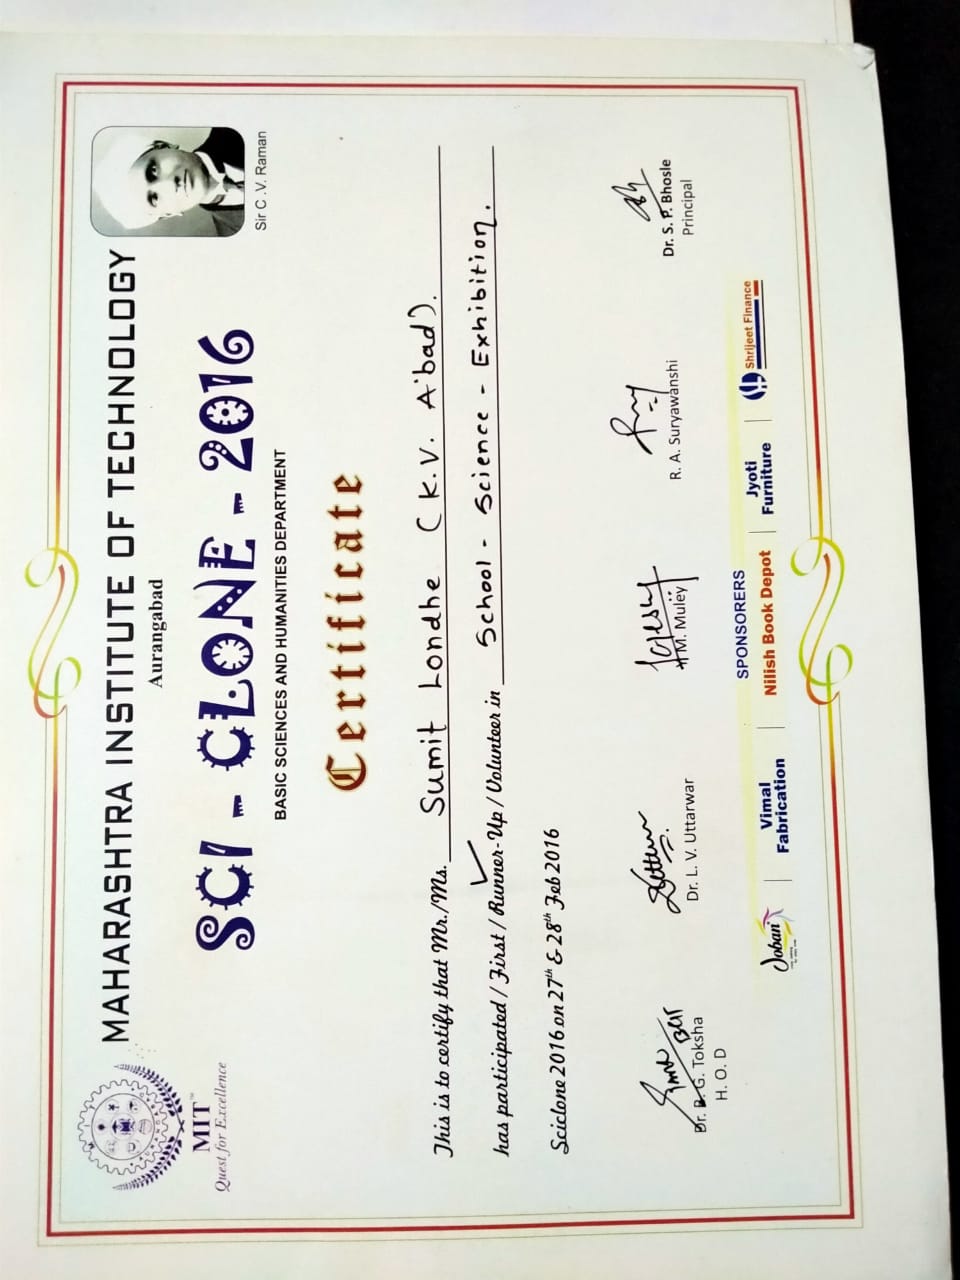 MAHARASHTRA INSTITUTE OF TECHNOLOGY
Aurangabad
MIT™
Quest for Excellence
Sir C .V. Raman
SCI - CLONE - 2016
BASIC SCIENCES AND HUMANITIES DEPARTMENT
Certificate
This is to certify that Mr./Ms. Sumit Londhe (K.V. A'bad).
has participated / First / Runner-Up / Volunteer in School - Science - Exhibition.
Sciclone 2016 on 27th & 28th Feb 2016
Dr. B. G. Toksha
H. O. D
Dr. L. V. Uttarwar
H M. Muley
R. A. Suryawanshi
Dr. S. P. Bhosle
Principal
SPONSORERS
Joban
Vimal Fabrication
Nilish Book Depot
Jyoti Furniture
Shrijeet Finance